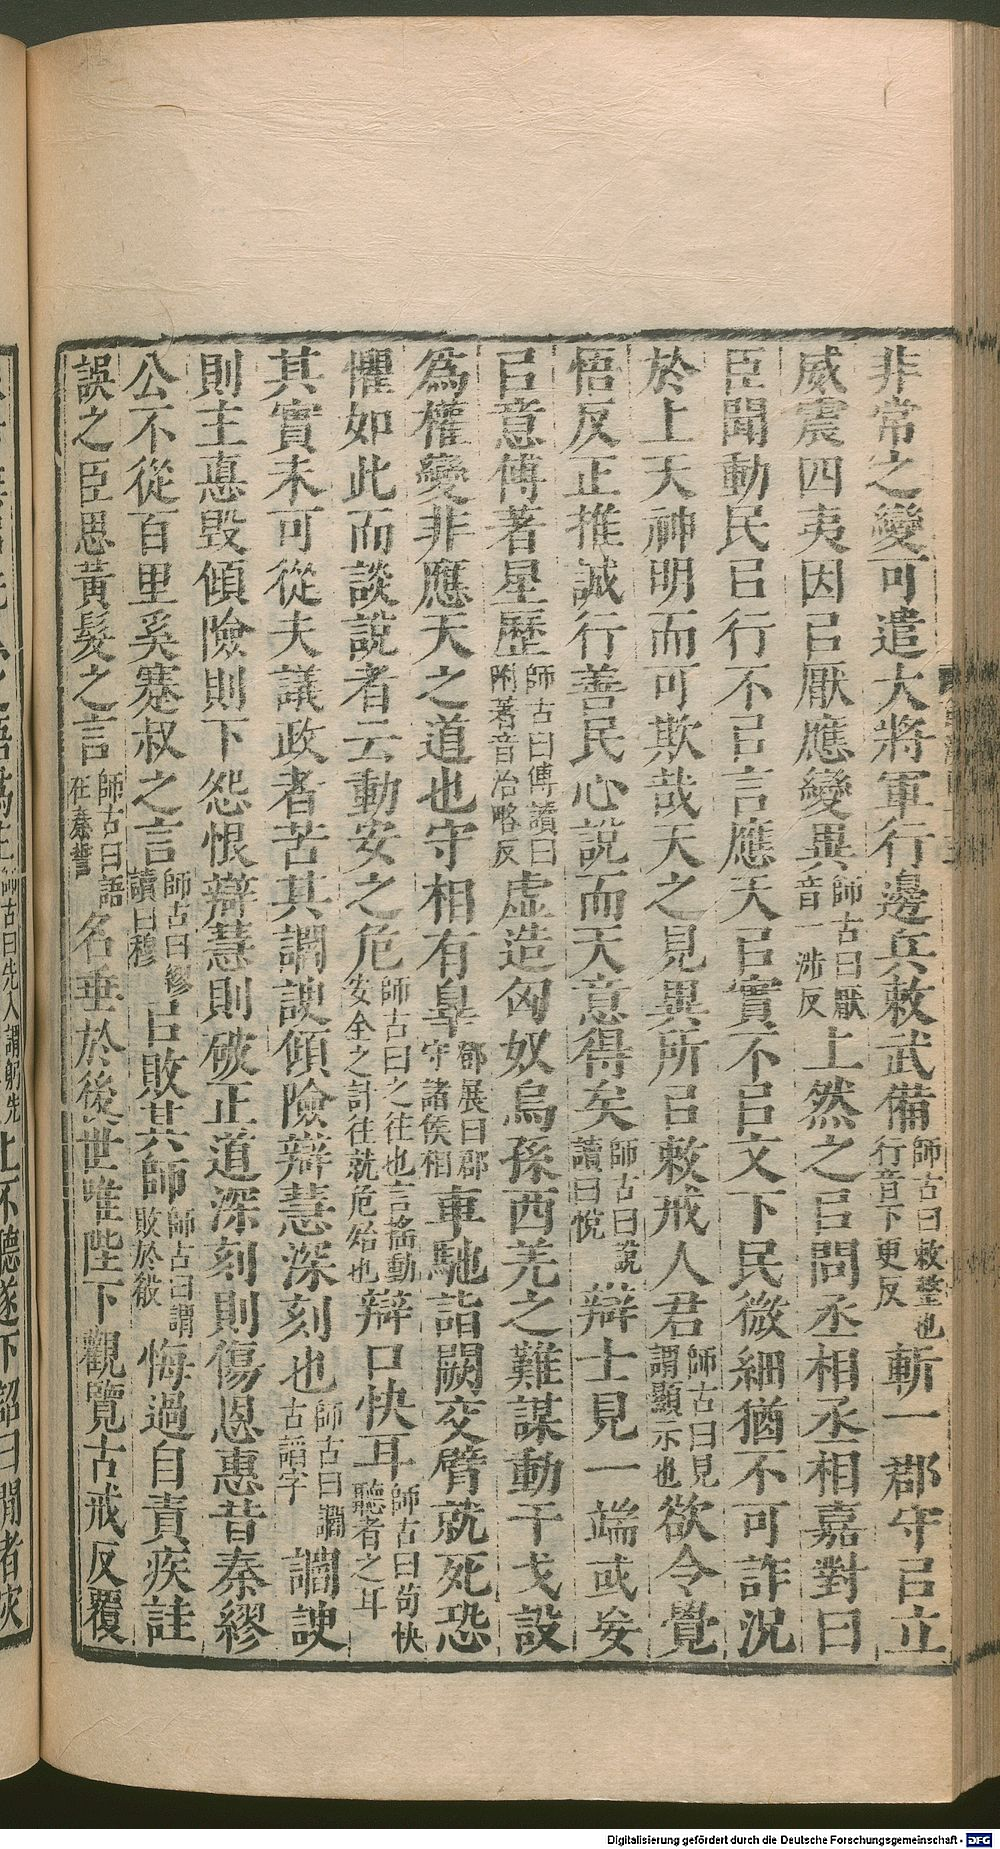 非常之變可遣大將軍行邊兵敕武備師古曰敕整也行音下更反斬一郡守㠯立
威震四夷因㠯厭應變異師古曰厭音一涉反上然之㠯問丞相丞相嘉對曰
臣聞動民㠯行不㠯言應天㠯實不㠯文下民微細猶不可詐況
於上天神明而可欺哉天之見異所㠯敕戒人君師古曰見謂顯示也欲令覺
悟反正推誠行善民心說而天意得矣師古曰說讀曰悅辯士見一端或妄
㠯意傅著星歷師古曰傅讀曰附著音治略反虛造匈奴烏孫西羌之難謀動干戈設
為權變非應天之道也守相有辠鄧展曰郡守諸侯相車馳詣闕交臂就死恐
懼如此而談說者云動安之危師古曰之往也言搖動安全之計往就危殆也辯口快耳師古曰苟快聽者之耳
其實未可從夫議政者苦其讇諛傾險辯慧深刻也師古曰讇古諂字讇諛
則主悳毀傾險則下怨恨辯慧則破正道深刻則傷恩惠昔秦繆
公不從百里奚蹇叔之言師古曰繆讀曰穆㠯敗其師師古曰謂敗於殽悔過自責疾詿
誤之臣思黃髮之言師古曰語在秦誓名垂於後世唯陛下觀覽古戒反覆
師古曰先入謂躬先
上不聽遂下詔曰間者災
Digitalisierung gefördert durch die Deutsche Forschungsgemeinschaft - DFG